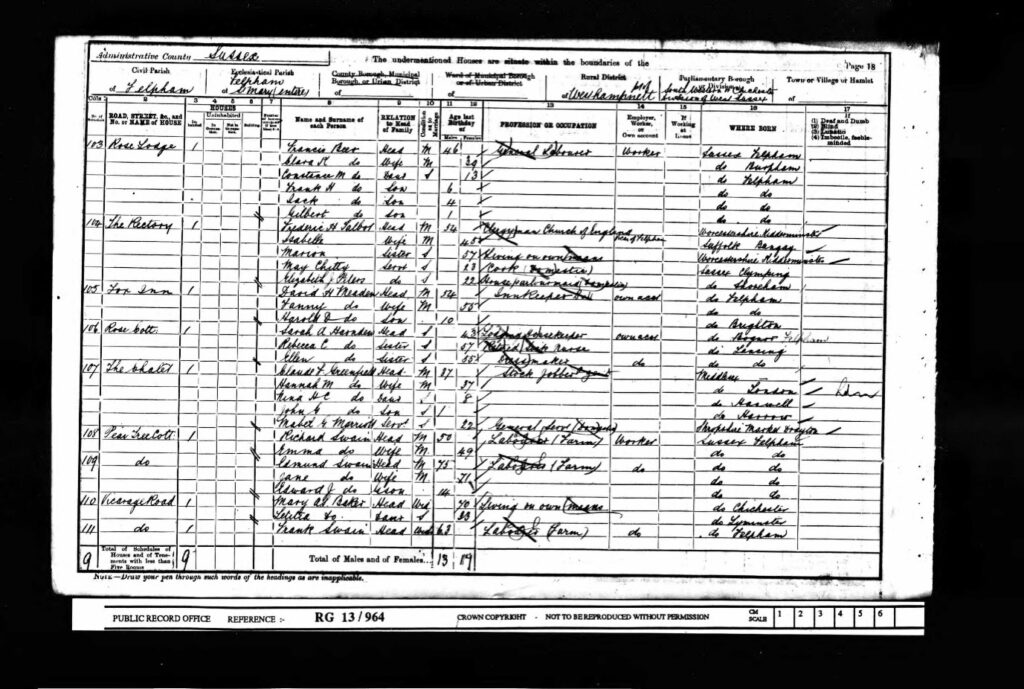 Administrative County Sussex
The undermentioned Houses are situate within the boundaries of the
Page 18
Civil Parish of Felpham
Ecclesiastical Parish of Felpham S Mary (entire)
County Borough, Municipal Borough, or Urban District of
Ward of Municipal Borough or of Urban District of
Rural District of Westhampnett
Parliamentary Borough or Division of
Town or Village or Hamlet of
ROAD, STREET, &c., and No. or NAME of HOUSE
HOUSES
Uninhabited
Name and Surname of each Person
RELATION to Head of Family
Condition as to Marriage
Age last Birthday of
Males Females
PROFESSION OR OCCUPATION
Employer, Worker, or Own account
If Working at Home
WHERE BORN
(1) Deaf and Dumb
(2) Blind
(3) Lunatic
(4) Imbecile, feeble-minded
103 Rose Lodge 1 Francis Beer Head M 46 General Labourer Worker Sussex Felpham
Clara R do Wife M 39 do Burpham
Constance M do Daur S 13 do Felpham
Frank H do Son 6 do do
Jack do Son 4 do do
Gilbert do Son 1 do do
104 The Rectory 1 Frederic H Talbot Head M 54 Clergyman Church of England Worcestershire Kidderminster
Isabella Wife M 45 Suffolk Bungay
Marion Sister S 57 Living on own means Worcestershire Kidderminster
May Chitty Servt S 23 Cook (Domestic) Sussex Clymping
Elizabeth J do S 22 House parlourmaid (Domestic) do Shoreham
105 Fox Inn 1 David H Meaden Head M 54 Innkeeper own acct do Felpham
Fanny do Wife M 55 do do
Harold D do Son 10 do Brighton
106 Rose Cott. 1 Sarah A Harnden Head S 43 Lodging Housekeeper own acct do Bognor Felpham
Rebecca C. do Sister S 57 Retired Sick Nurse do Lancing
Ellen do Sister S 55 Dressmaker do do
107 The Chalet 1 Claude F. Greenfield Head M 37 Stock Jobber Middlesex
Hannah M do Wife M 37 do London
Nina H C do Daur 8 do
John G do Son S 1 do Harrow
Mabel G Marriott Servt S 22 General Serv (Domestic) Shropshire Market Drayton
108 Pear Tree Cott. 1 Richard Swain Head M 50 Labourer (Farm) Worker Sussex Felpham
Emma do Wife M 49 do do
109 do 1 Edmund Swain Head M 75 Labourer (Farm) do do do
Jane do Wife M 71 do do
Edward J do 14 do do
110 Vicarage Road 1 Mary A Baker Head Wid 70 Living on own means do Chichester
Letitia do Daur S 33 do Lyminster
111 do 1 Frank Swain Head 63 Labourer (Farm) do do Felpham
9 Total of Schedules of Houses and of Tenements with less than Five Rooms 9
Total of Males and of Females... 13 19
NOTE—Draw your pen through such words of the headings as are inapplicable.
PUBLIC RECORD OFFICE REFERENCE :- RG 13/964 CROWN COPYRIGHT - NOT TO BE REPRODUCED WITHOUT PERMISSION CM SCALE 1 2 3 4 5 6